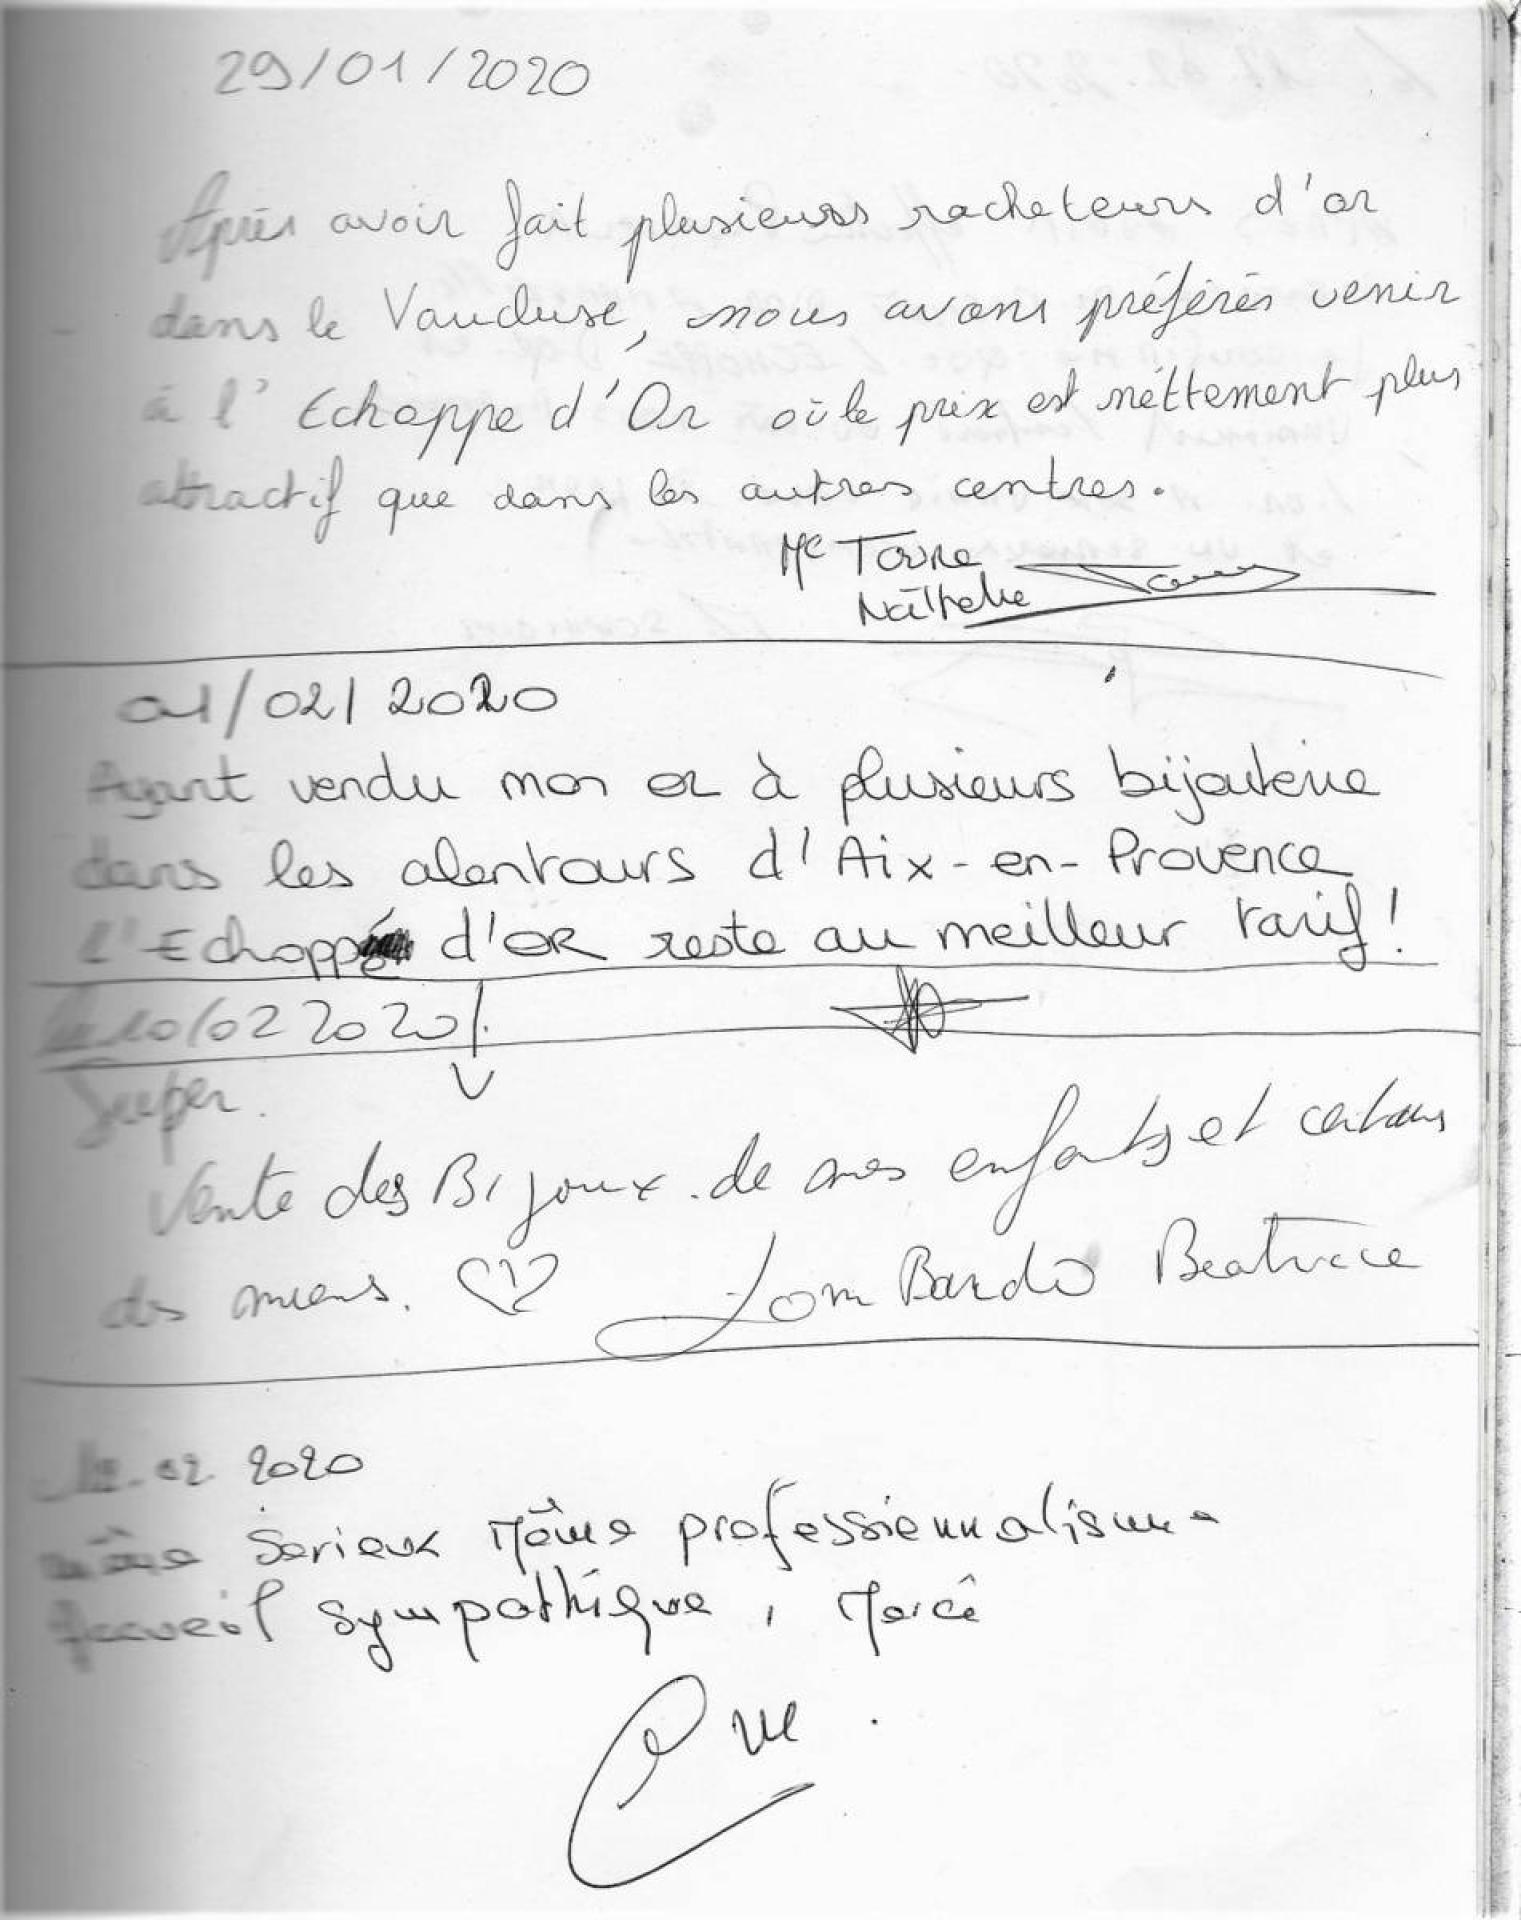 29/01/2020
Après avoir fait plusieurs racheteurs d'or
dans le Vaucluse, nous avons préférés venir
à l'Echoppe d'Or où le prix est néttement plus
attractif que dans les autres centres.
Me Torre
Nathalie
01/02/2020
Ayant vendu mon or à plusieurs bijouterie
dans les alentours d'Aix-en-Provence
l'Echoppe d'OR reste au meilleur tarif!
10/02 2020
Super.
Vente des Bijoux de mes enfants et certains
des miens. ♡
Lombardo Beatrice
12.02 2020
même Serieux Même professionnalisme
Accueil Sympathique, Merci